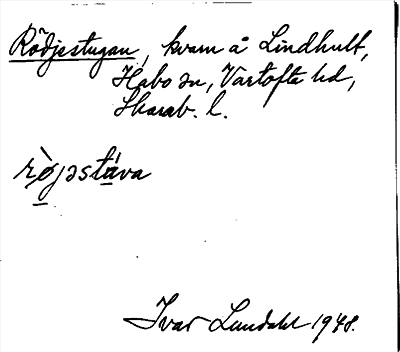 Rödjestugan, kvarn å Lindhult,
Habo sn, Vartofta hd,
Skarab. l.
rø̀jəstáva
Ivar Lundahl 1948.